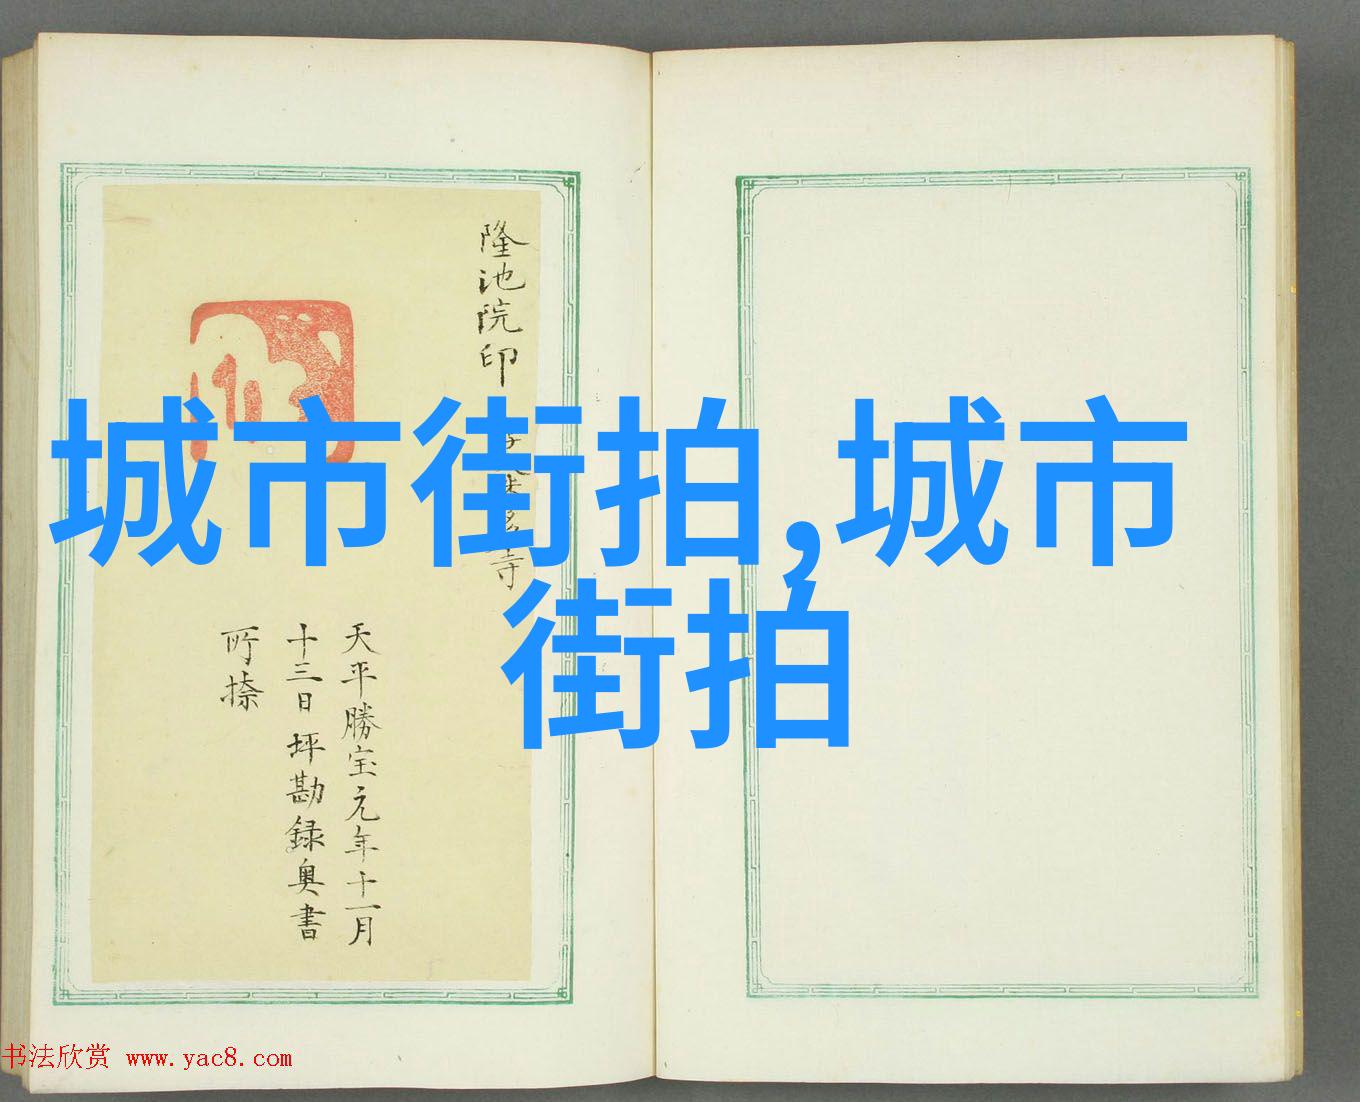 城市街拍,城市
街拍
隆池院印
寺
天平勝宝元年十一月
十三日坪勘録奥書
所捺
书法欣赏 www.yac8.com